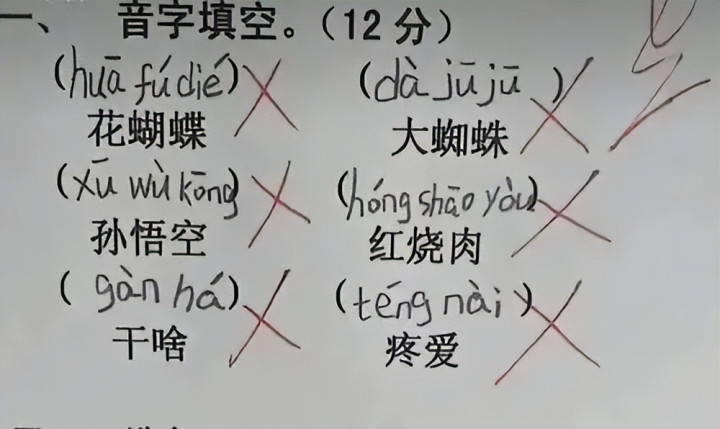 一、 音字填空。(12分)
(huā fú dié) (dà jū jū )
花蝴蝶 大蜘蛛
(xū wù kōng) (hóng shāo yòu)
孙悟空 红烧肉
( gàn há) (téng nài )
干啥 疼爱